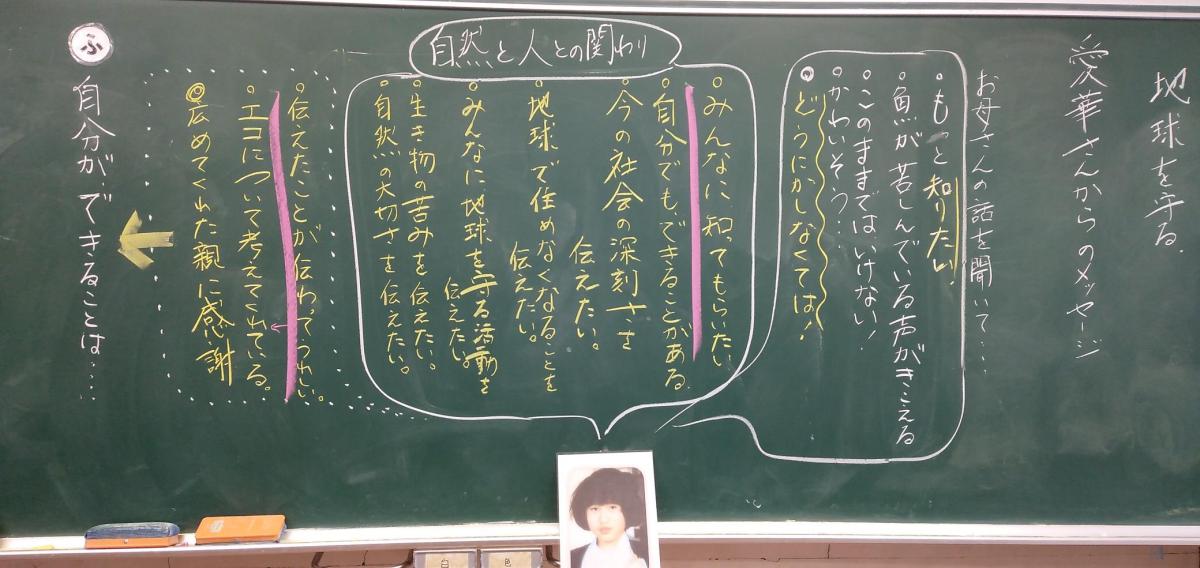 地球を守る
愛華さんからのメッセージ
お母さんの話を聞いて…
もっと知りたい！
魚が苦しんでいる声がきこえる
このままではいけない！
かわいそう…
どうにかしなくては！
自然と人との関わり
みんなに知ってもらいたい
自分でも、できることがある
今の社会の深刻さを
伝えたい。
地球で住めなくなることを
伝えたい。
みんなに、地球を守る活動を
伝えたい。
生き物の苦みを伝えたい。
自然の大切さを伝えたい。
伝えたことが伝わってうれしい。
エコについて考えてくれている。
広めてくれた親に感謝
ふ
自分が、できることは…
白
色